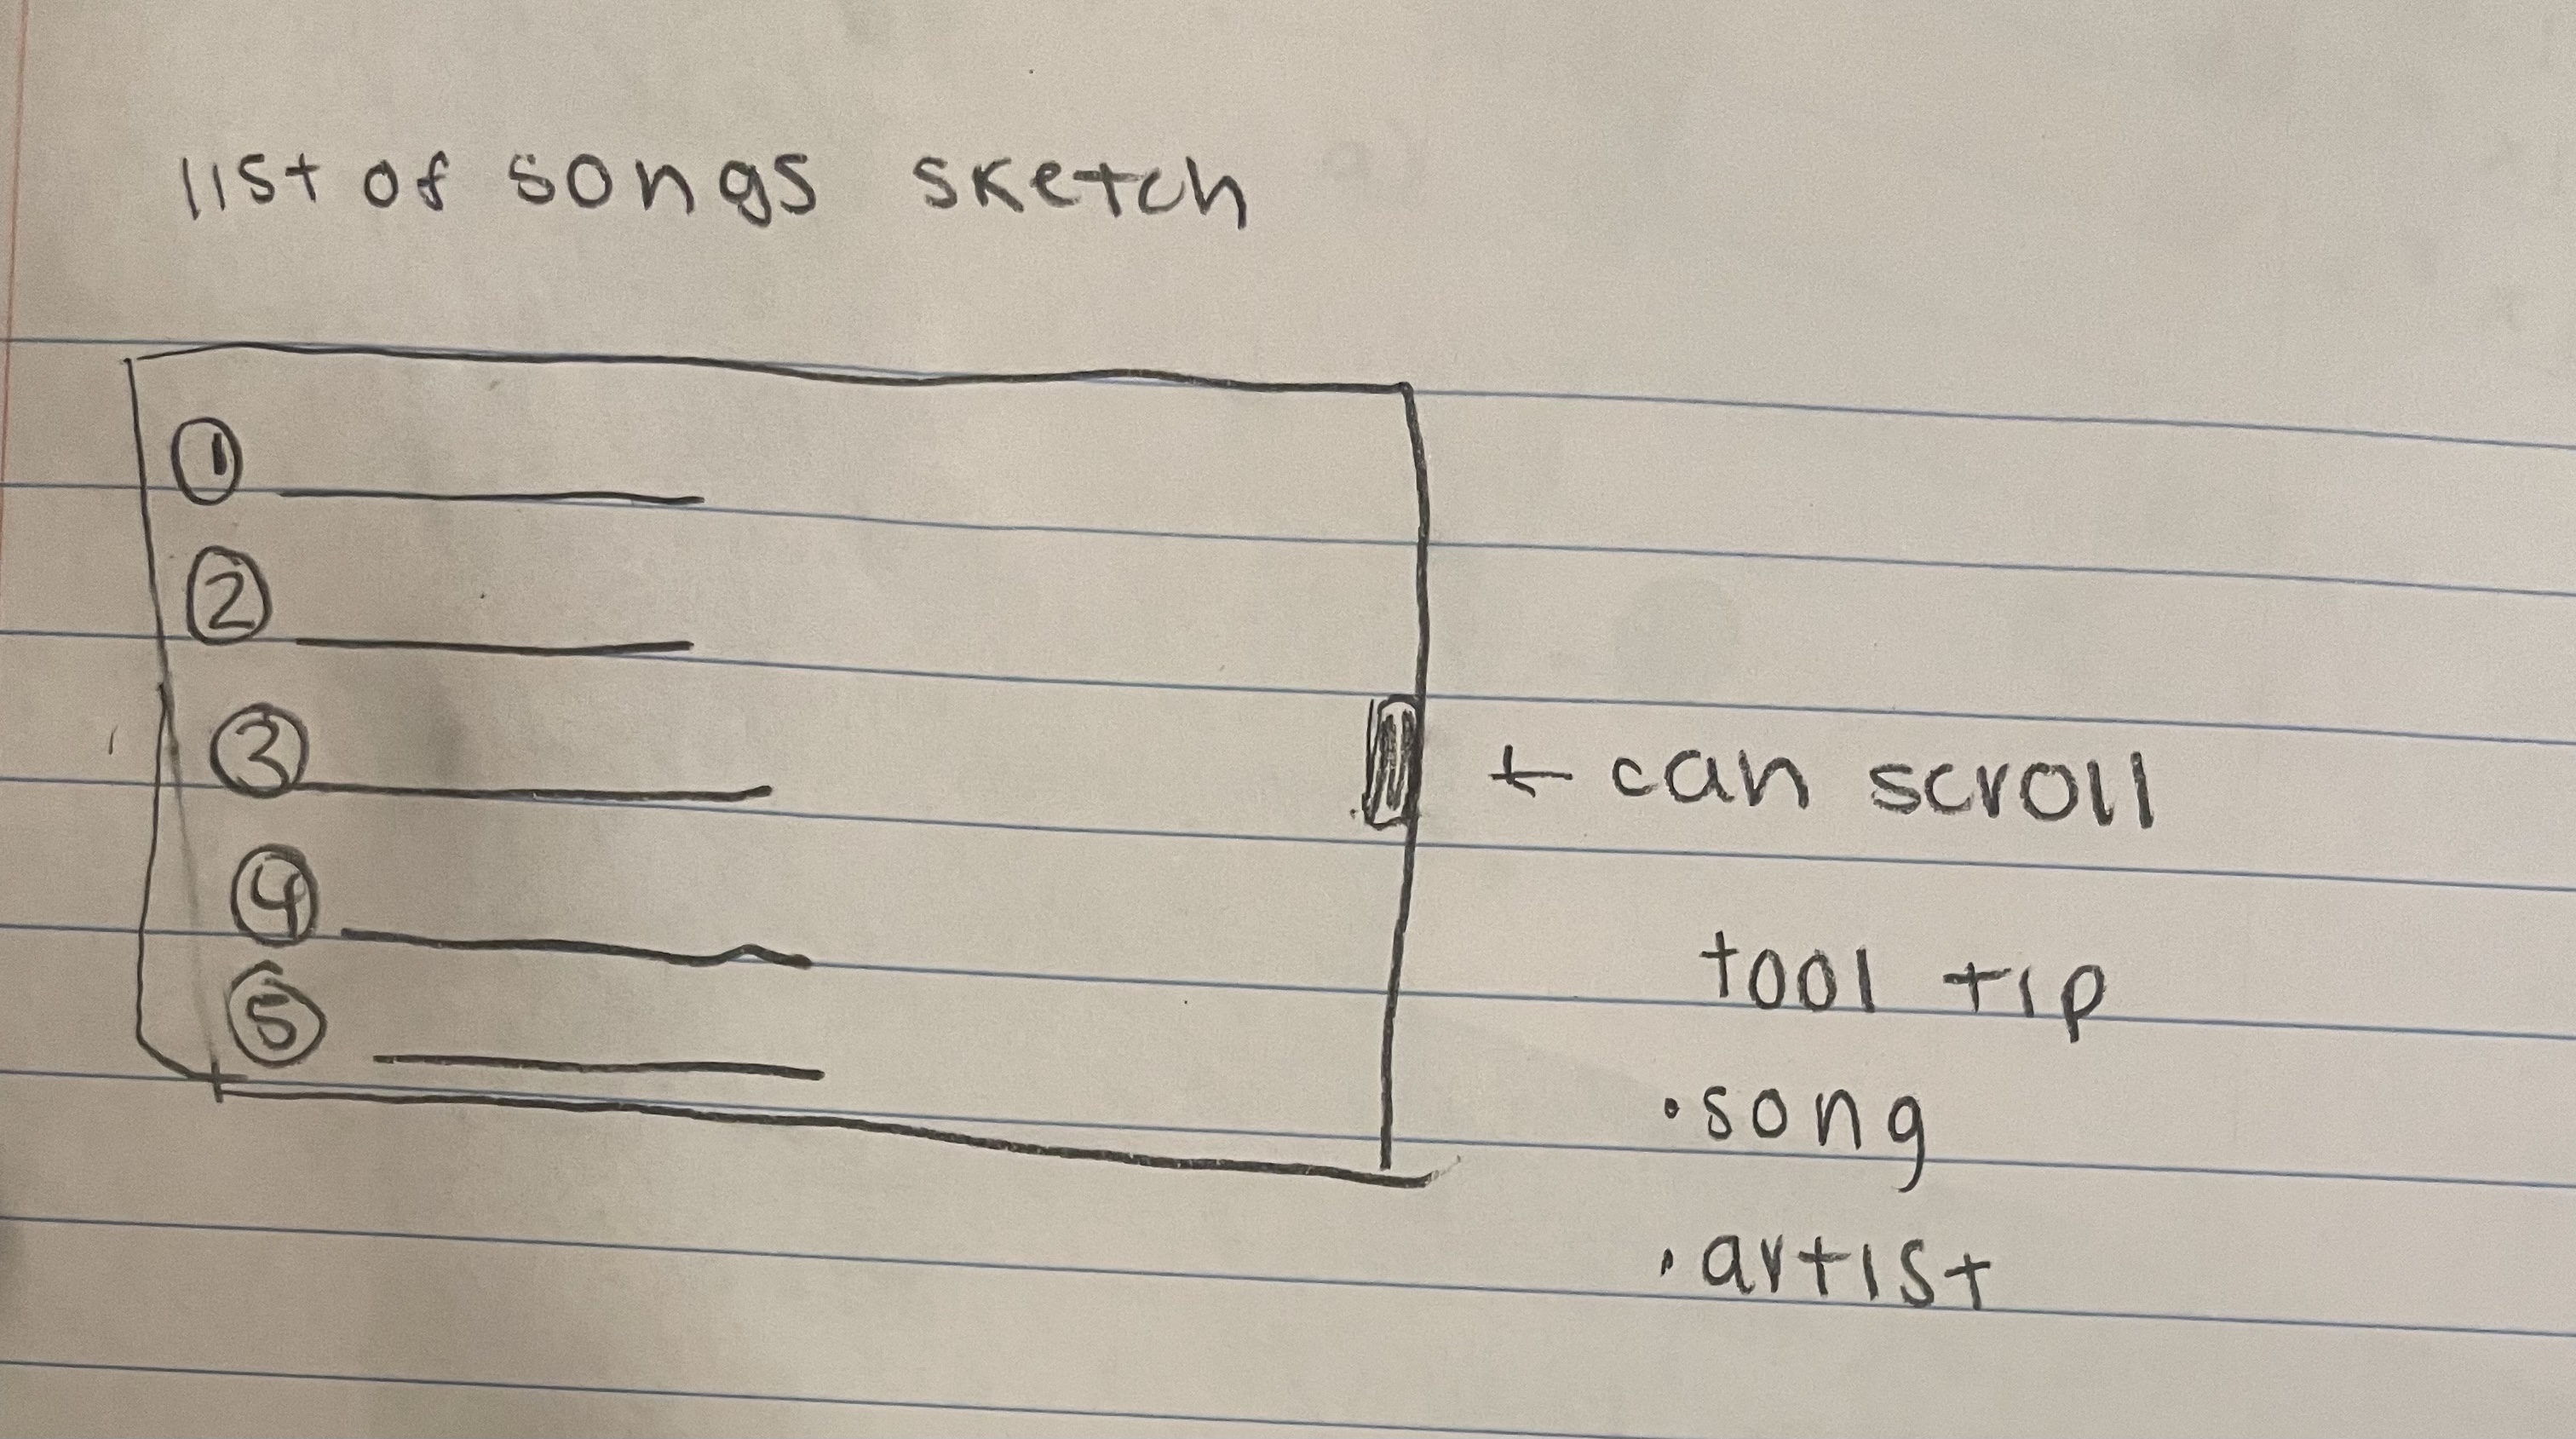 list of songs sketch
1
2
3
4
5
← can scroll
tool tip
• song
• artist